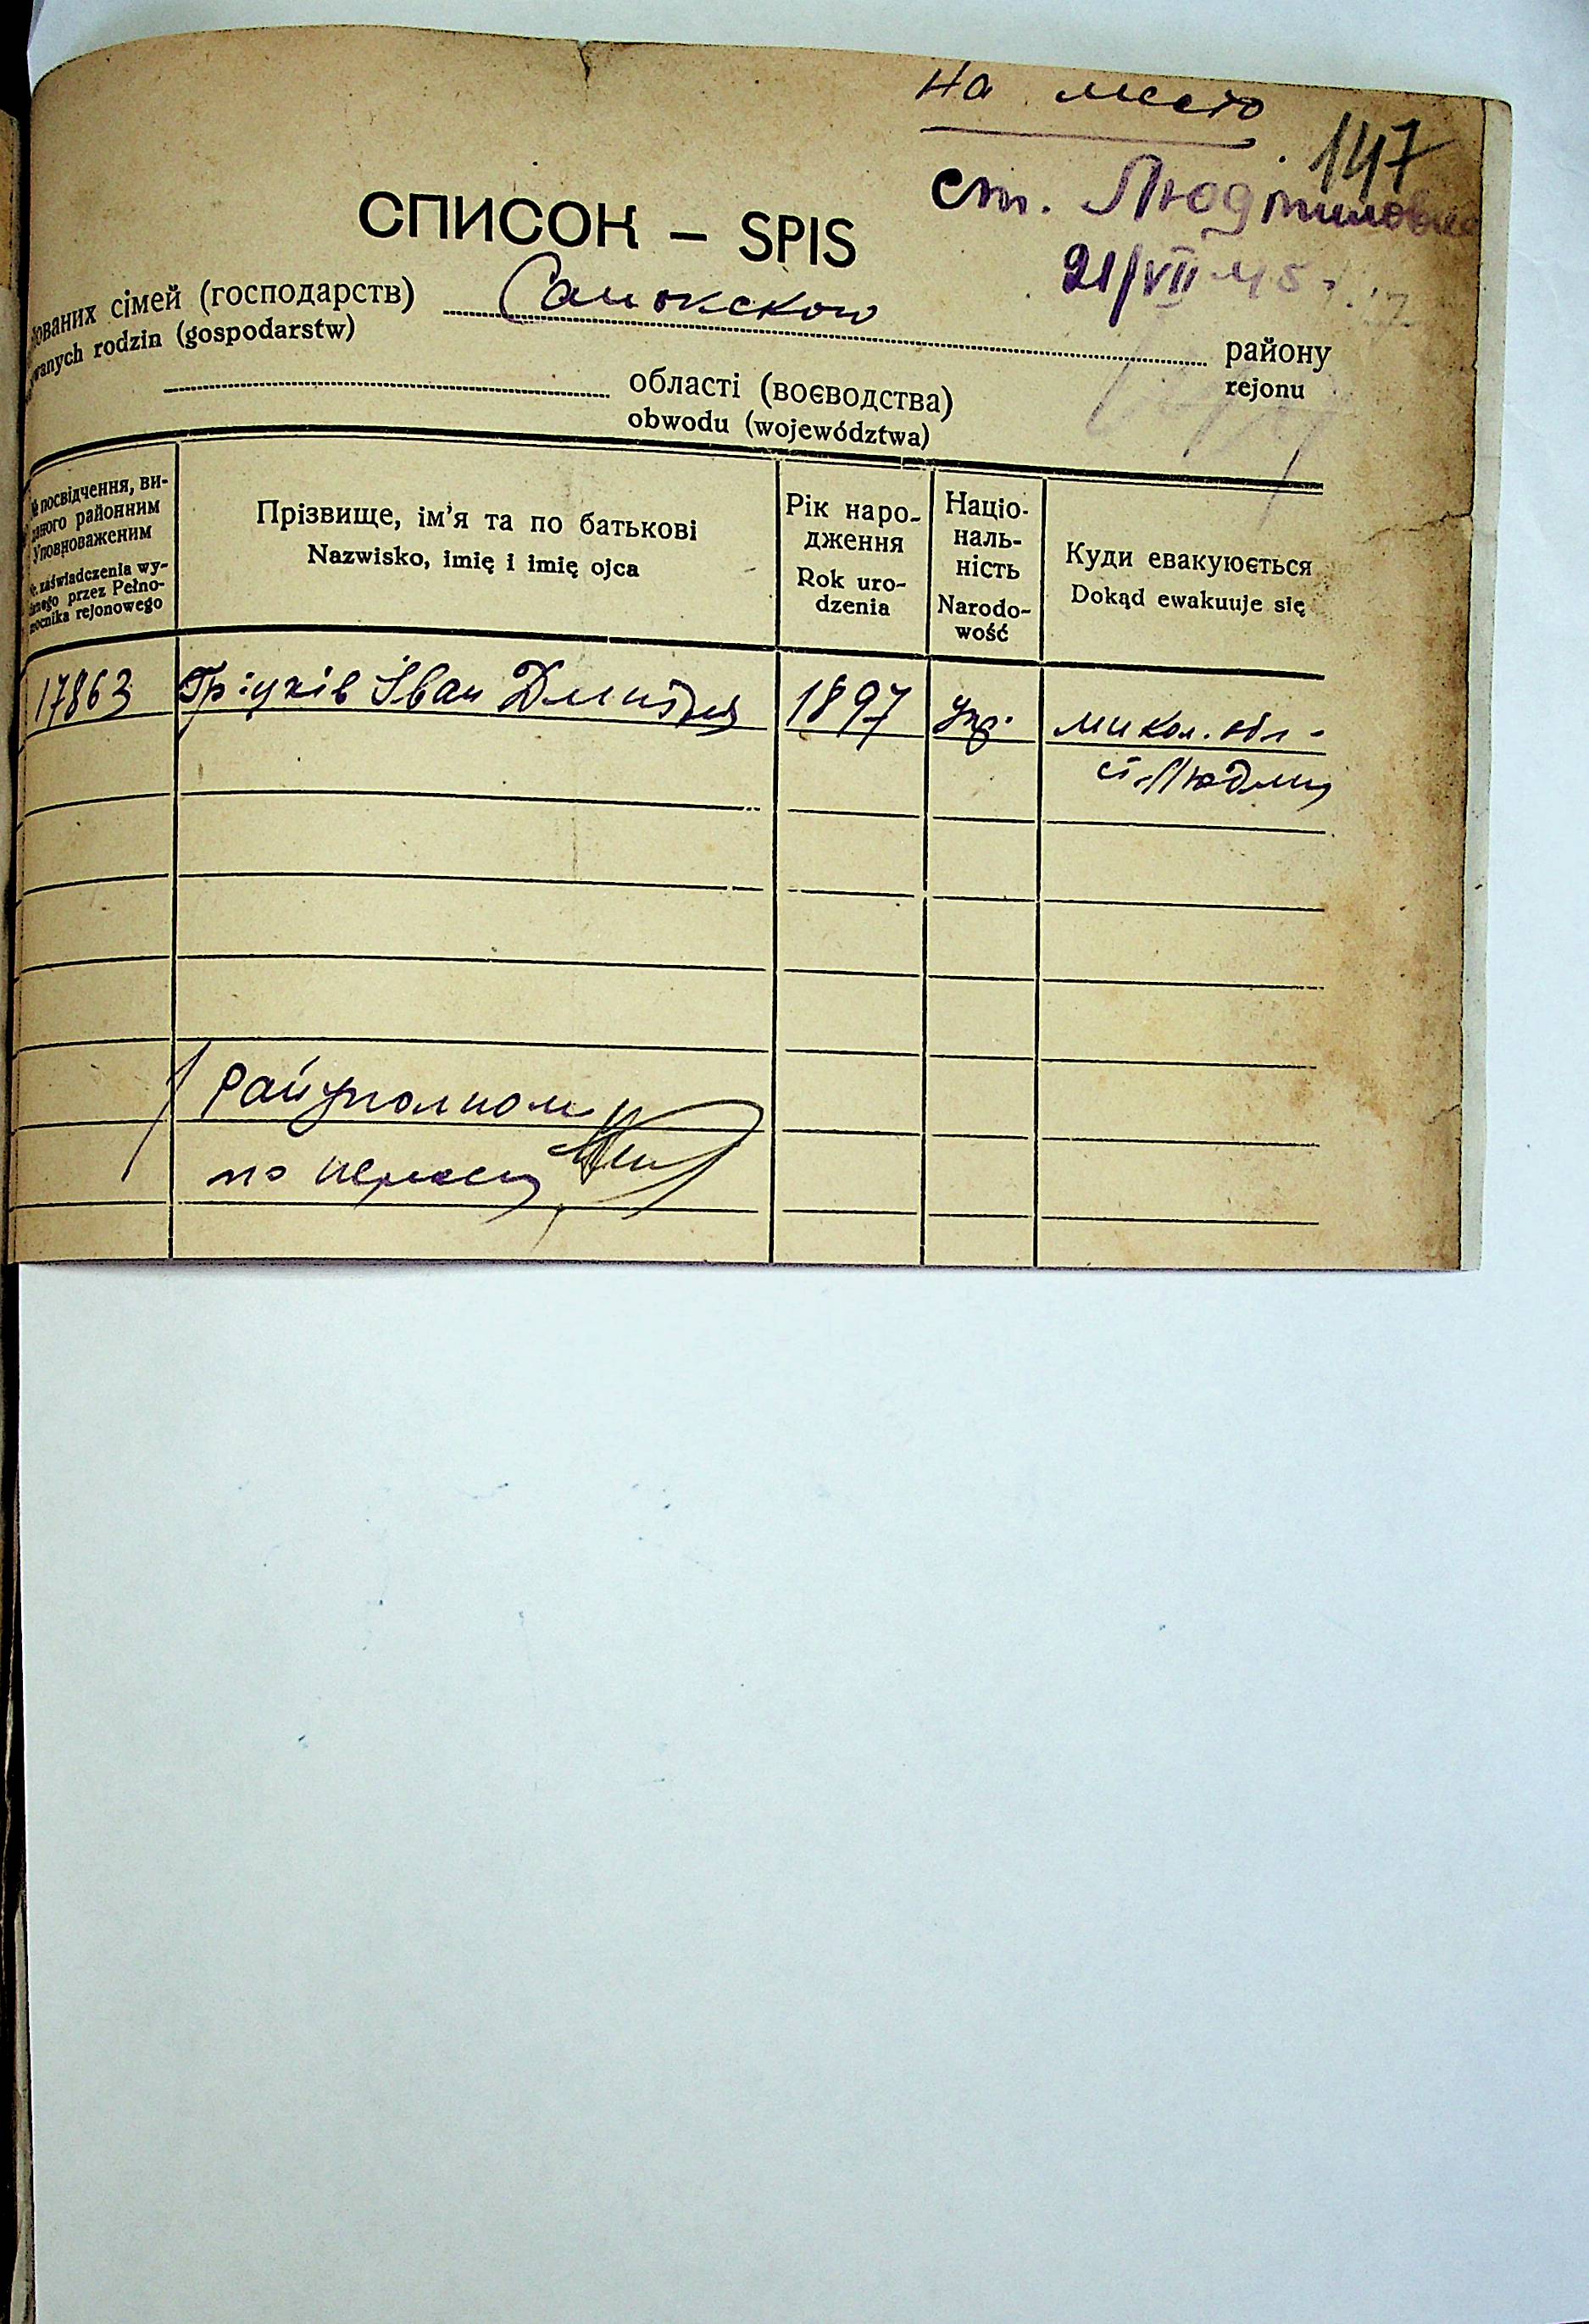 на место
147
ст. Людмиловка
21/VII-45 г.
СПИСОК – SPIS
ованих сімей (господарств) Санокского району
wanych rodzin (gospodarstw) rejonu
області (воєводства)
obwodu (województwa)
№ посвідчення, ви-
даного районним
Уповноваженим
Nr. zaświadczenia wy-
danego przez Pełno-
mocnika rejonowego
Прізвище, ім'я та по батькові
Nazwisko, imię i imię ojca
Рік наро-
дження
Rok uro-
dzenia
Націо-
наль-
ність
Narodo-
wość
Куди евакуюється
Dokąd ewakuuje się
17863 Гріцків Іван Дмитро 1897 укр. микол. обл -
ст. Людми
Райуполном
по пересел